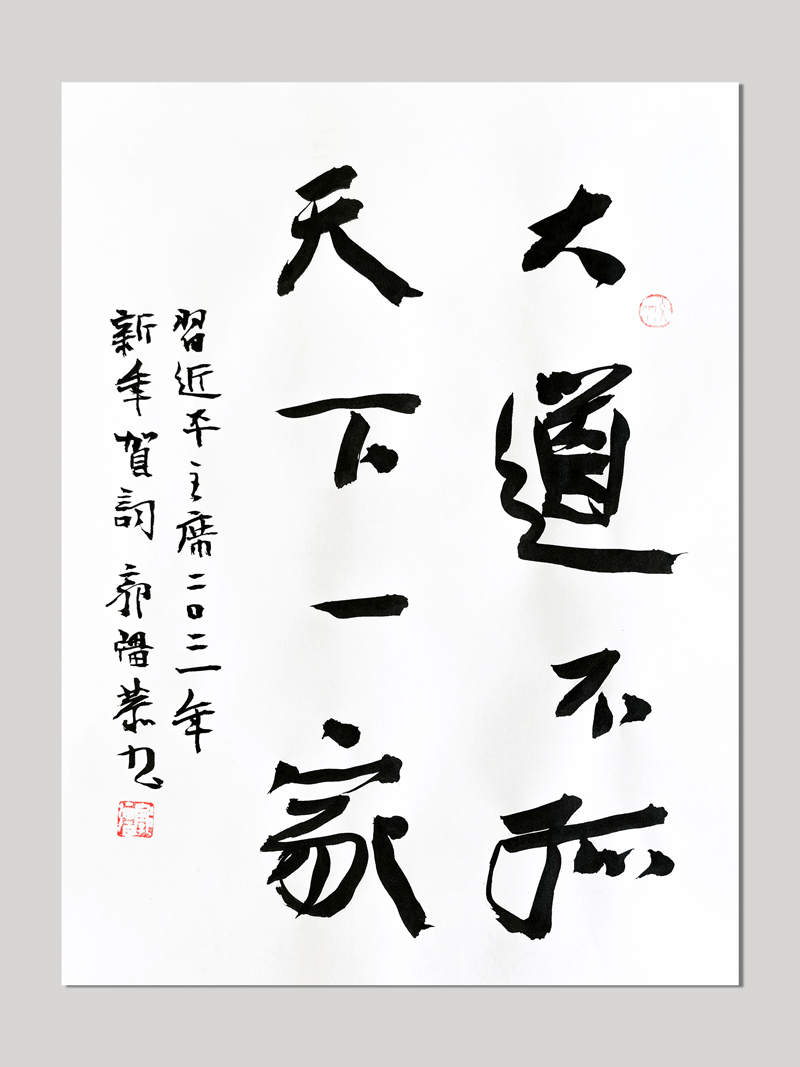 大道不孤
天下一家
習近平主席二〇二一年
新年賀詞 郭福恭书